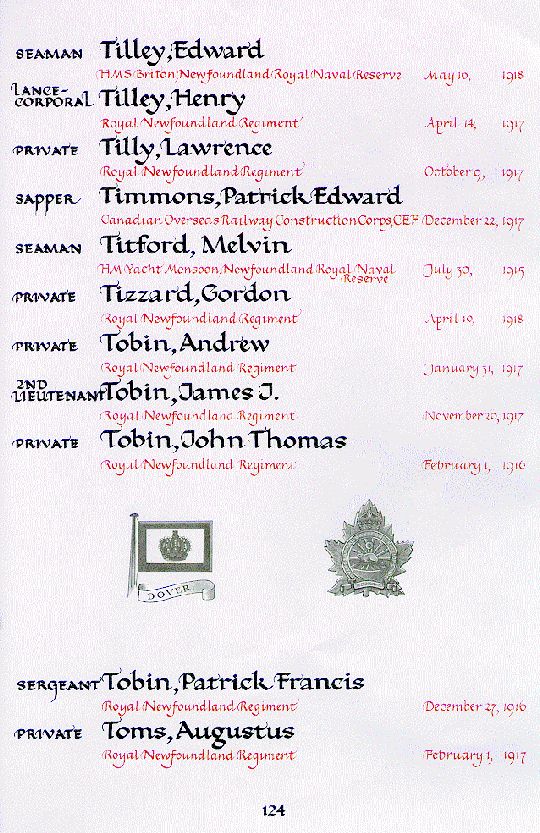 SEAMAN Tilley, Edward
HMS Briton, Newfoundland Royal Naval Reserve May 10, 1918
LANCE-CORPORAL Tilley, Henry
Royal Newfoundland Regiment April 14, 1917
PRIVATE Tilly, Lawrence
Royal Newfoundland Regiment October 9, 1917
SAPPER Timmons, Patrick Edward
Canadian Overseas Railway Construction Corps, CEF December 22, 1917
SEAMAN Titford, Melvin
HM Yacht Monsoon, Newfoundland Royal Naval Reserve July 30, 1915
PRIVATE Tizzard, Gordon
Royal Newfoundland Regiment April 10, 1918
PRIVATE Tobin, Andrew
Royal Newfoundland Regiment January 31, 1917
2ND LIEUTENANT Tobin, James J.
Royal Newfoundland Regiment November 20, 1917
PRIVATE Tobin, John Thomas
Royal Newfoundland Regiment February 1, 1916
DOVER
SERGEANT Tobin, Patrick Francis
Royal Newfoundland Regiment December 27, 1916
PRIVATE Toms, Augustus
Royal Newfoundland Regiment February 1, 1917
124